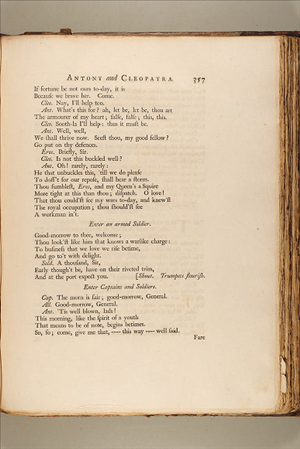 ANTONY and CLEOPATRA. 357
If fortune be not ours to-day, it is
Becauſe we brave her. Come.
Cleo. Nay, I'll help too.
Ant. What's this for? ah, let be, let be, thou art
The armourer of my heart; falſe, falſe; this, this.
Cleo. Sooth-la I'll help: thus it muſt be.
Ant. Well, well,
We ſhall thrive now. Seeſt thou, my good fellow?
Go put on thy defences.
Eros. Briefly, Sir.
Cleo. Is not this buckled well?
Ant. Oh! rarely, rarely:
He that unbuckles this, 'till we do pleaſe
To doff't for our repoſe, ſhall hear a ſtorm.
Thou fumbleſt, Eros, and my Queen's a ſquire
More tight at this than thou; diſpatch. O love!
That thou could'ſt ſee my wars to-day, and knew'ſt
The royal occupation; thou ſhould'ſt ſee
A workman in't.
Enter an armed Soldier.
Good-morrow to thee, welcome;
Thou look'ſt like him that knows a warlike charge:
To buſineſs that we love we riſe betime,
And go to't with delight.
Sold. A thouſand, Sir,
Early though't be, have on their riveted trim,
And at the port expect you. [Shout. Trumpets flouriſh.
Enter Captains and Soldiers.
Cap. The morn is fair; good-morrow, General.
All. Good-morrow, General.
Ant. 'Tis well blown, lads!
This morning, like the ſpirit of a youth
That means to be of note, begins betimes.
So, ſo; come, give me that, ---- this way ---- well ſaid.
Fare